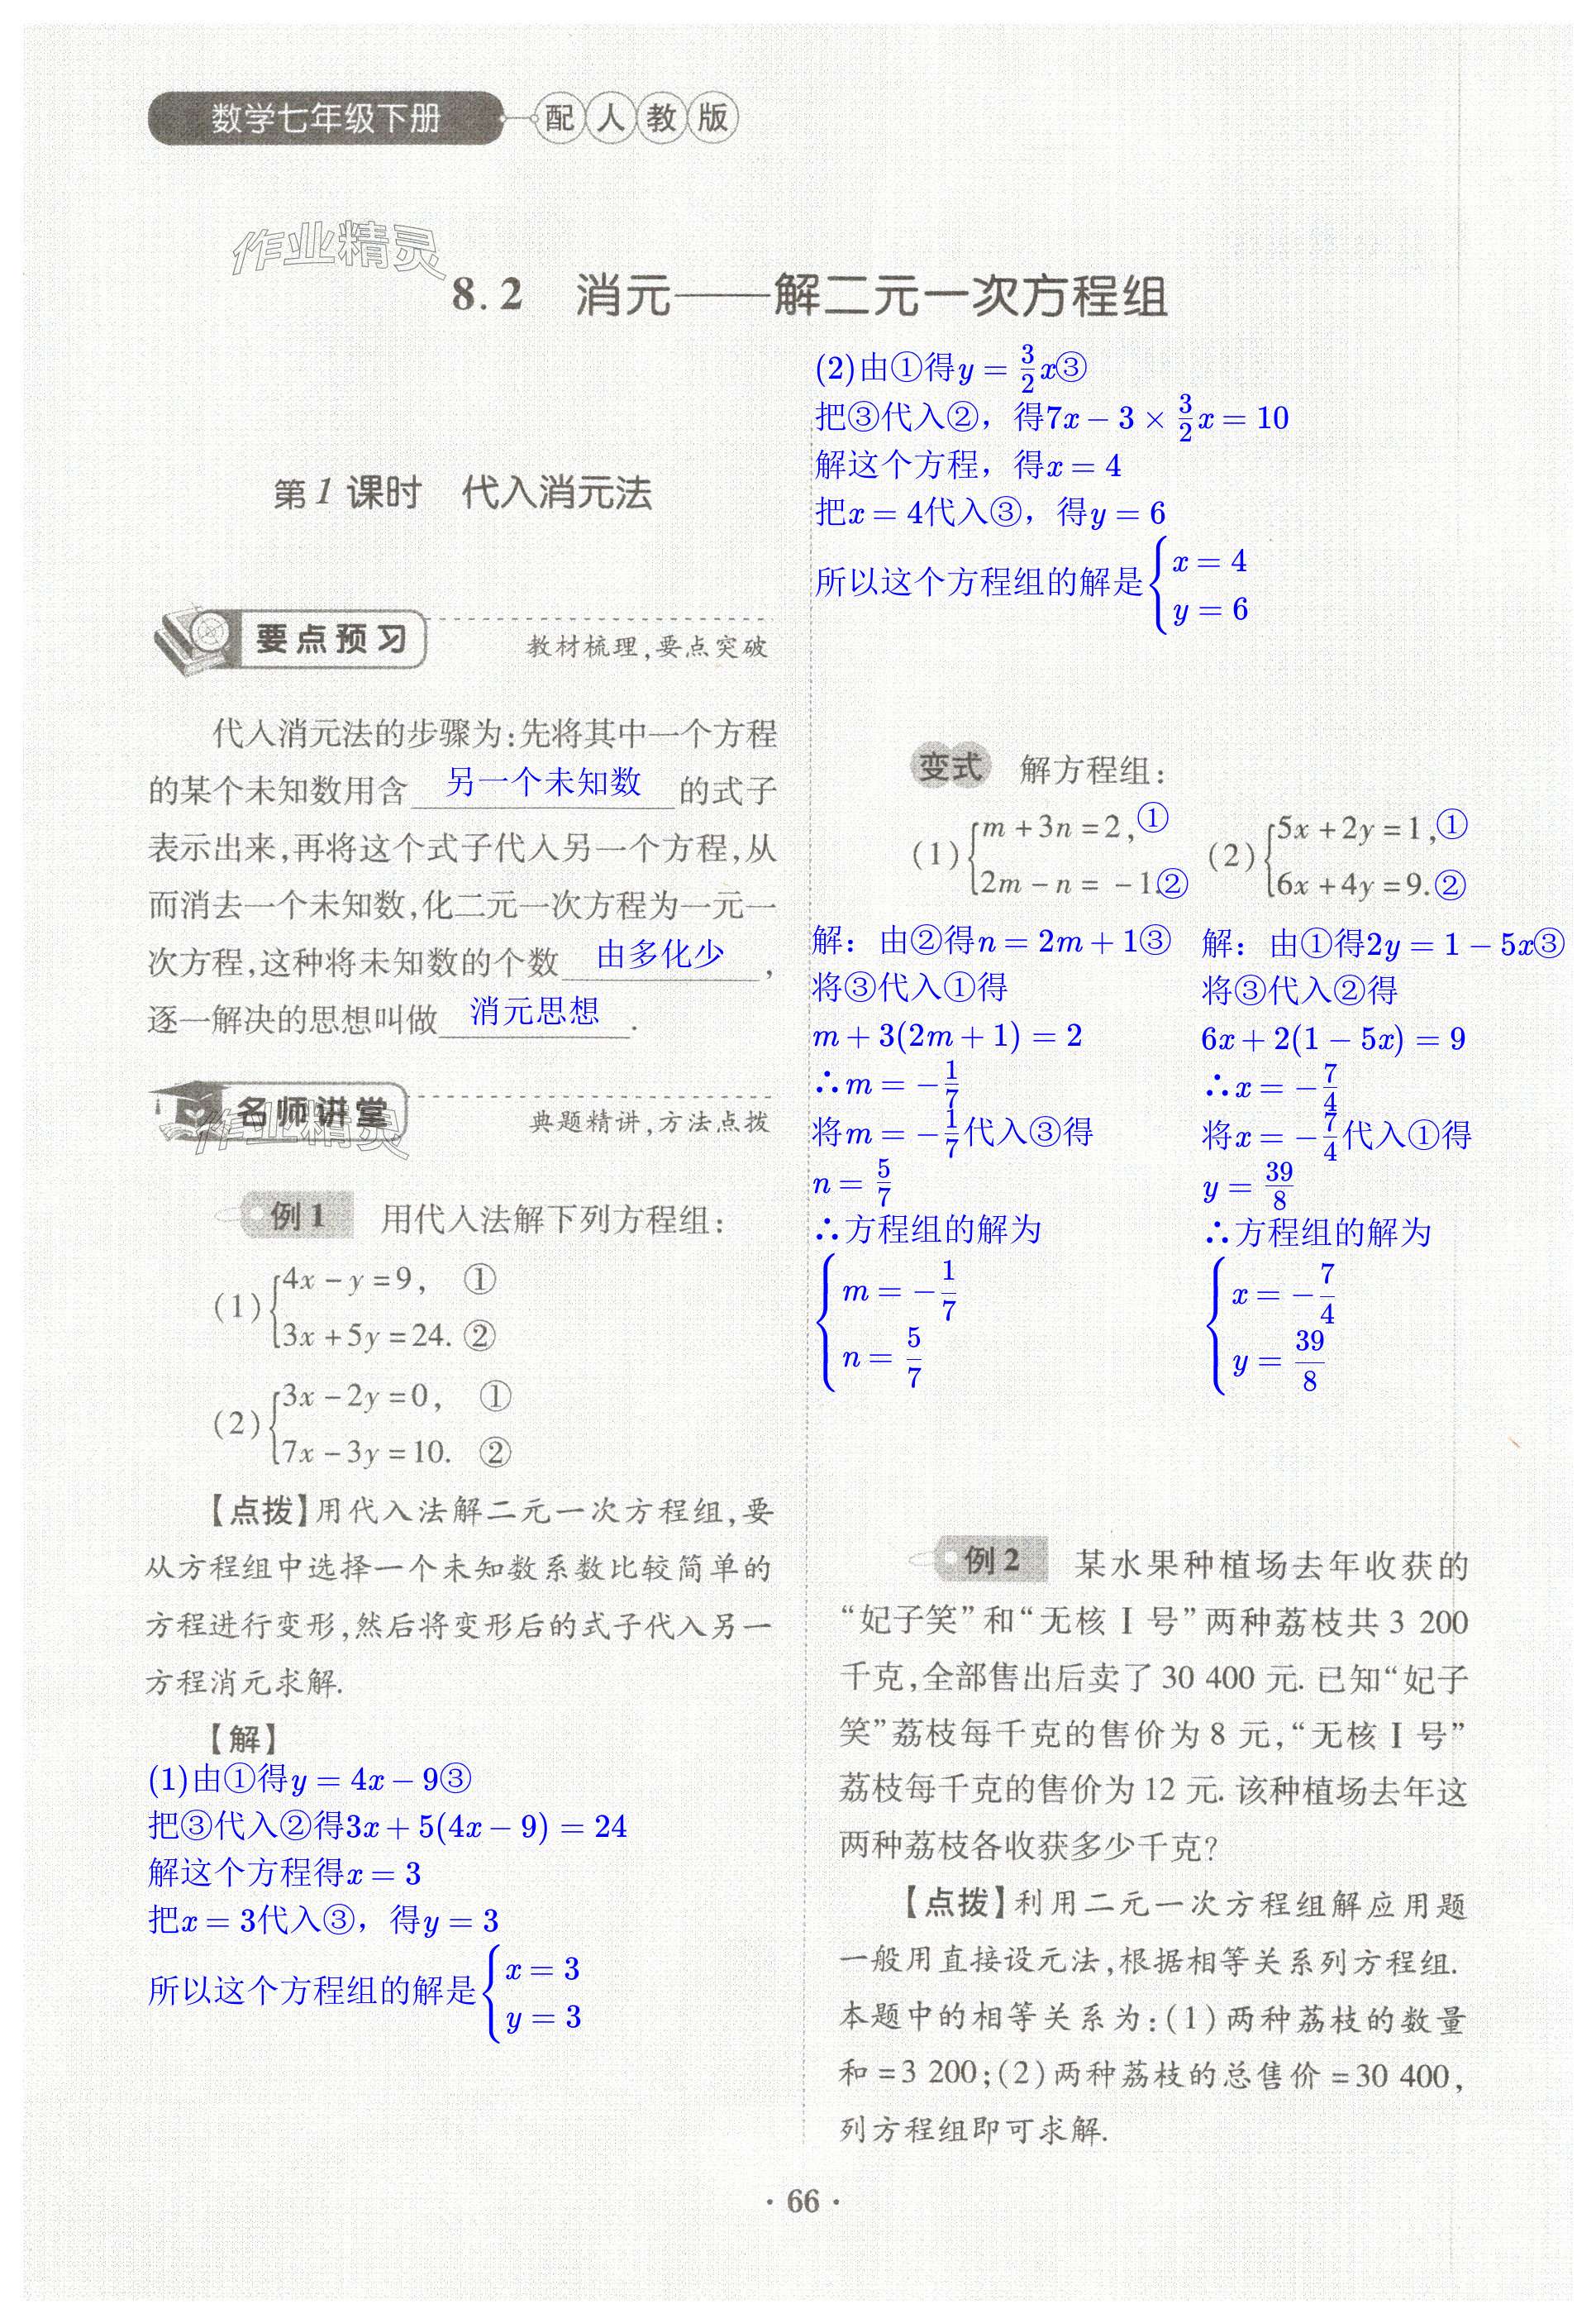 数学七年级下册 配人教版
作业精灵
8.2 消元——解二元一次方程组
第1课时 代入消元法
要点预习 教材梳理,要点突破
代入消元法的步骤为:先将其中一个方程
的某个未知数用含 另一个未知数 的式子
表示出来,再将这个式子代入另一个方程,从
而消去一个未知数,化二元一次方程为一元一
次方程,这种将未知数的个数 由多化少 ,
逐一解决的思想叫做 消元思想 .
名师讲堂 典题精讲,方法点拨
作业精灵
例1 用代入法解下列方程组:
(1){4x-y=9, ①
3x+5y=24. ②
(2){3x-2y=0, ①
7x-3y=10. ②
【点拨】用代入法解二元一次方程组,要
从方程组中选择一个未知数系数比较简单的
方程进行变形,然后将变形后的式子代入另一
方程消元求解.
【解】
(1)由①得y=4x-9③
把③代入②得3x+5(4x-9)=24
解这个方程得x=3
把x=3代入③，得y=3
所以这个方程组的解是{x=3
y=3
(2)由①得y=3/2x③
把③代入②，得7x-3×3/2x=10
解这个方程，得x=4
把x=4代入③，得y=6
所以这个方程组的解是{x=4
y=6
变式 解方程组:
(1){m+3n=2,①
2m-n=-1.②
(2){5x+2y=1,①
6x+4y=9.②
解：由②得n=2m+1③
将③代入①得
m+3(2m+1)=2
∴m=-1/7
将m=-1/7代入③得
n=5/7
∴方程组的解为
{m=-1/7
n=5/7
解：由①得2y=1-5x③
将③代入②得
6x+2(1-5x)=9
∴x=-7/4
将x=-7/4代入①得
y=39/8
∴方程组的解为
{x=-7/4
y=39/8
例2 某水果种植场去年收获的
“妃子笑”和“无核Ⅰ号”两种荔枝共3 200
千克,全部售出后卖了30 400元.已知“妃子
笑”荔枝每千克的售价为8元,“无核Ⅰ号”
荔枝每千克的售价为12元.该种植场去年这
两种荔枝各收获多少千克?
【点拨】利用二元一次方程组解应用题
一般用直接设元法,根据相等关系列方程组.
本题中的相等关系为:(1)两种荔枝的数量
和=3 200;(2)两种荔枝的总售价=30 400,
列方程组即可求解.
·66·